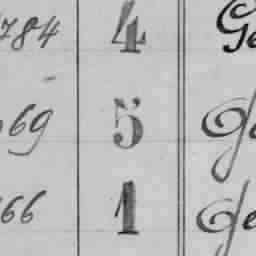 784 4 Ge
69 5 Ge
66 1 Ge